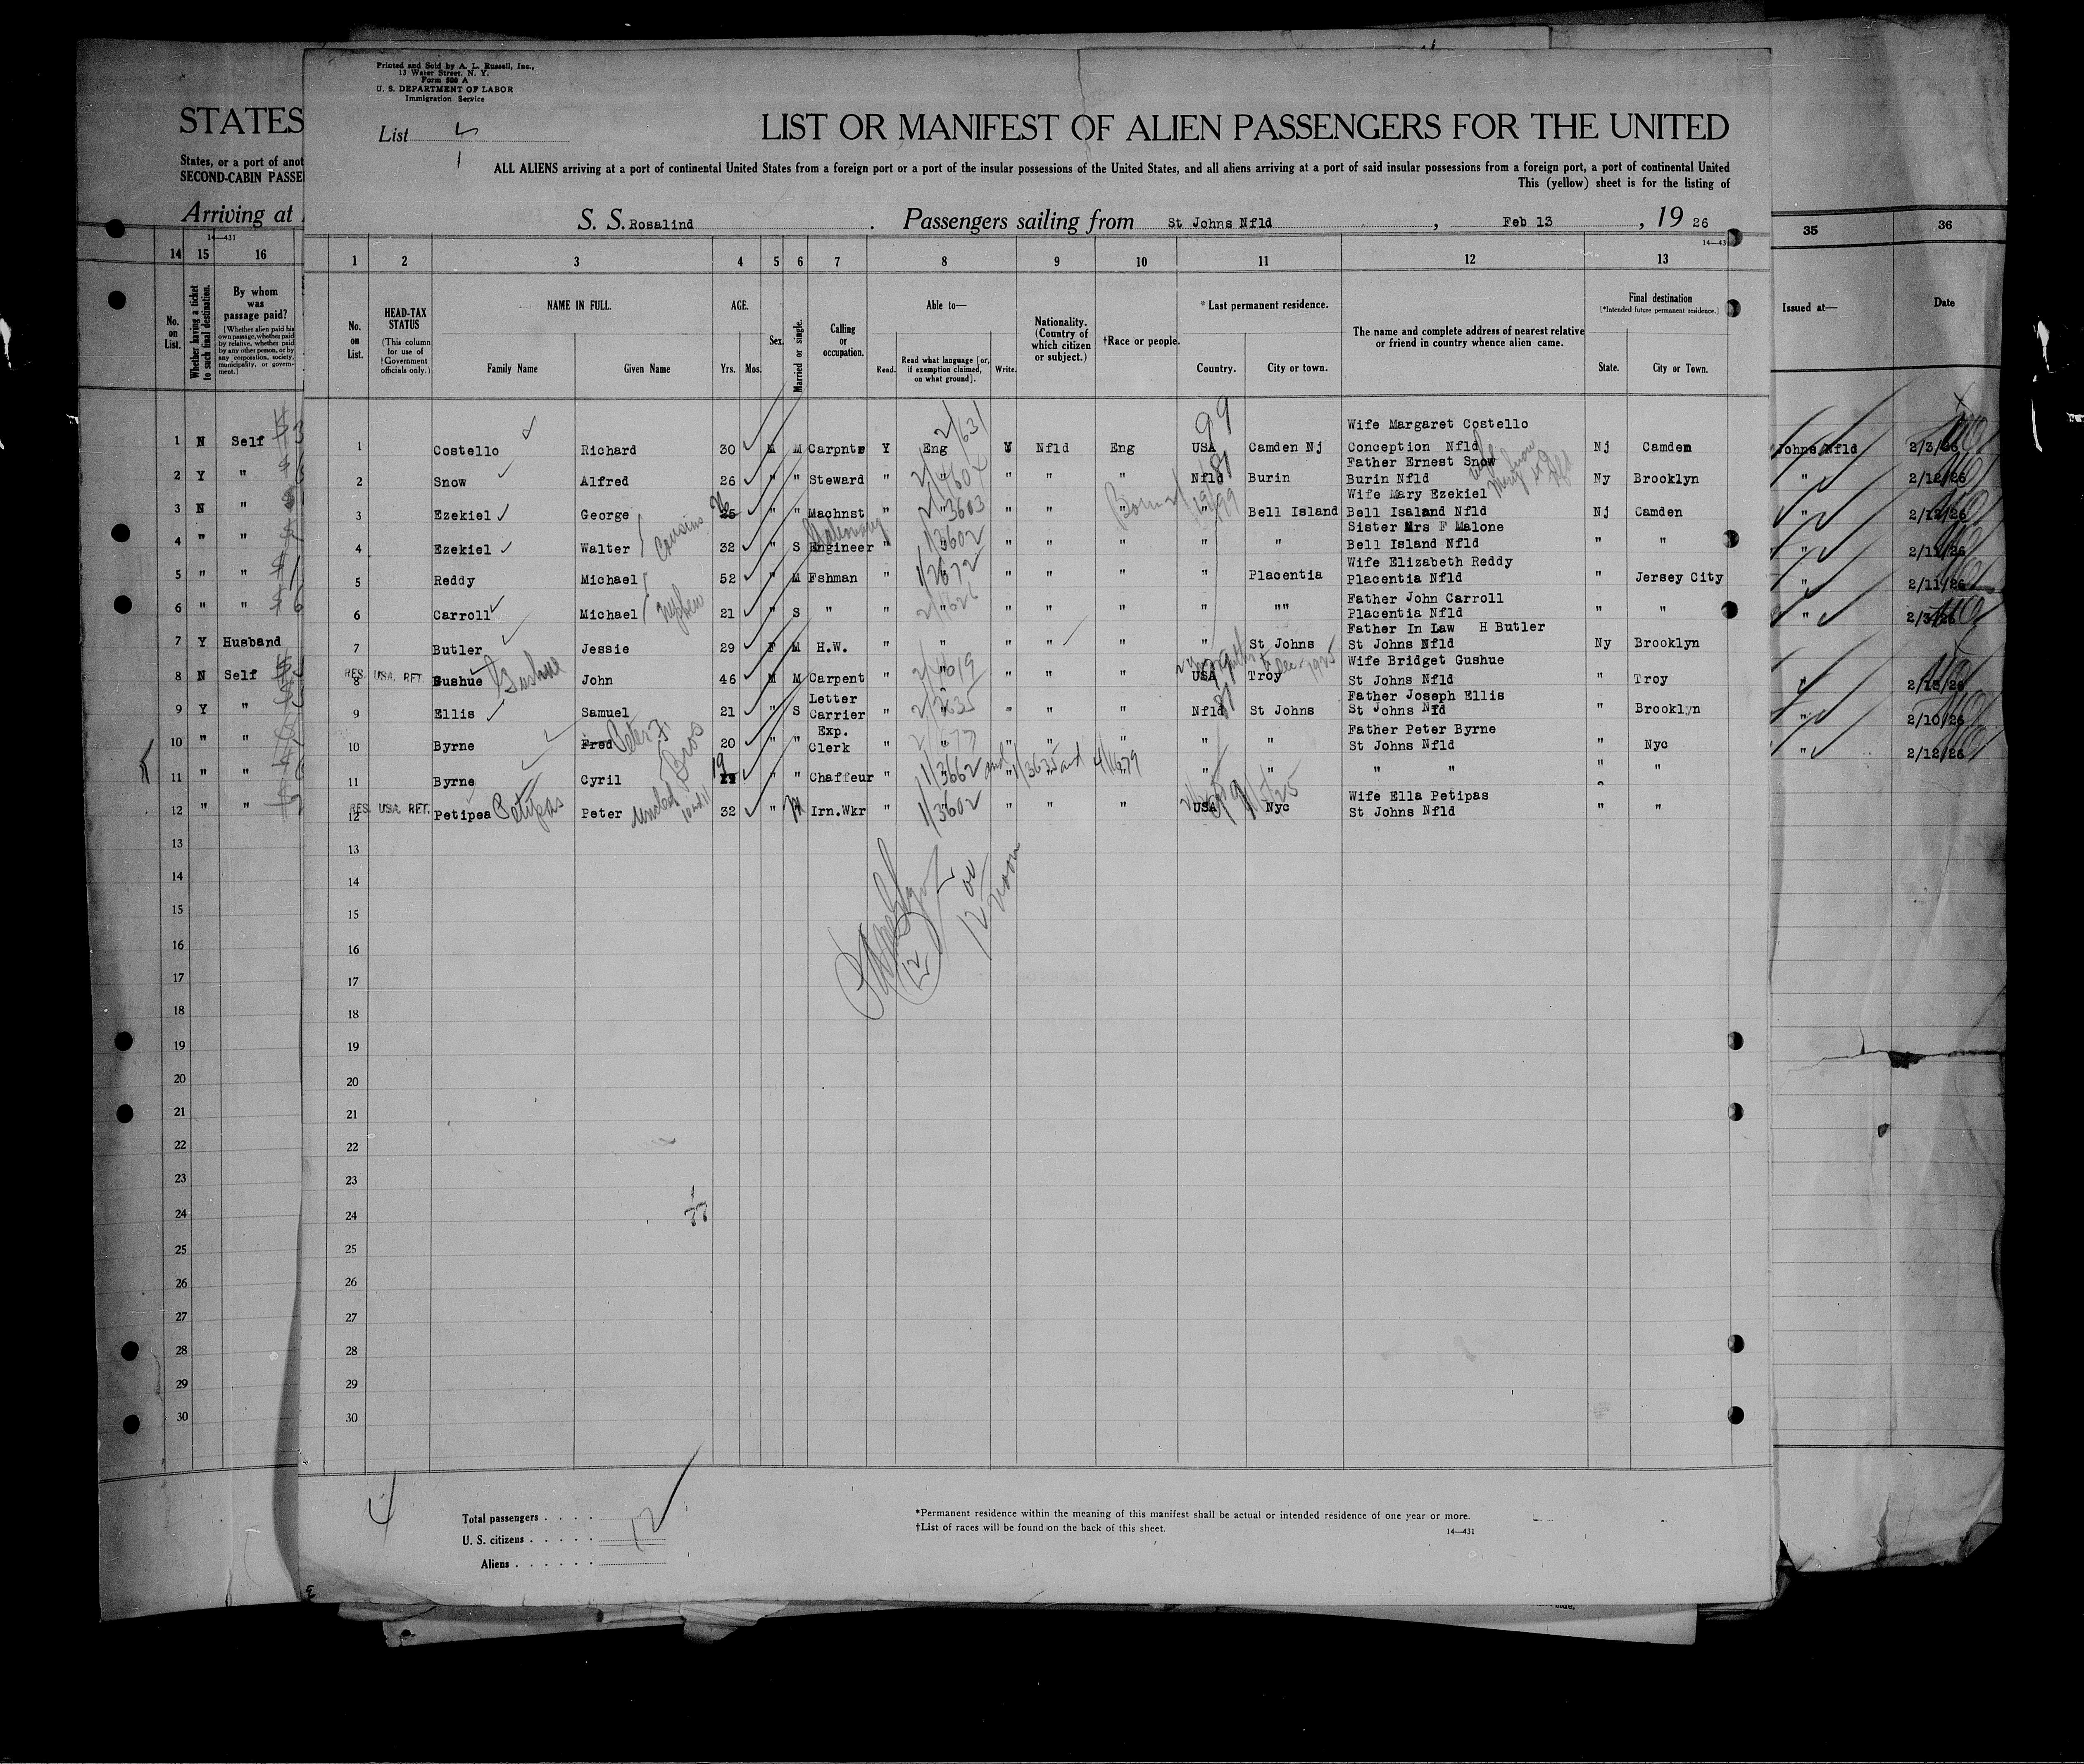 Printed and Sold by A. L. Russell, Inc.,
13 Water Street, N. Y.
Form 500 A
U. S. DEPARTMENT OF LABOR
Immigration Service
List
LIST OR MANIFEST OF ALIEN PASSENGERS FOR THE UNITED
STATES
ALL ALIENS arriving at a port of continental United States from a foreign port or a port of the insular possessions of the United States, and all aliens arriving at a port of said insular possessions from a foreign port, a port of continental United
States, or a port of anot
This (yellow) sheet is for the listing of
SECOND-CABIN PASSE
Arriving at
S. S. Rosalind . Passengers sailing from St Johns Nfld , Feb 13 , 19 26
14—431
14 15 16
1 2 3 4 5 6 7 8 9 10 11 12 13
35 36
No. on List.
Whether having a ticket to such final destination.
By whom was passage paid?
[Whether alien paid his own passage, whether paid by relative, whether paid by any other person, or by any corporation, society, municipality, or government.]
No. on List.
HEAD-TAX STATUS
(This column for use of Government officials only.)
NAME IN FULL.
Family Name
Given Name
AGE.
Yrs.
Mos.
Sex.
Married or single.
Calling or occupation.
Able to—
Read.
Read what language [or, if exemption claimed, on what ground].
Write.
Nationality. (Country of which citizen or subject.)
†Race or people.
* Last permanent residence.
Country.
City or town.
The name and complete address of nearest relative or friend in country whence alien came.
Final destination
[*Intended future permanent residence.]
State.
City or Town.
Issued at—
Date
1 N Self
1 Costello Richard 30 M M Carpntr Y Eng Y Nfld Eng USA Camden Nj Wife Margaret Costello
Conception Nfld Nj Camden Johns Nfld 2/3/26
2 Y " 2 Snow Alfred 26 " " Steward " " " " " Nfld Burin Father Ernest Snow
Burin Nfld Ny Brooklyn " 2/12/26
3 N " 3 Ezekiel George 25 " " Machnst " " " " " " Bell Island Wife Mary Ezekiel
Bell Isaland Nfld Nj Camden "
Cousins
Stationary
4 " " 4 Ezekiel Walter 32 " S Engineer " " " " " " " Sister Mrs F Malone
Bell Island Nfld " " " 2/11/26
5 " " 5 Reddy Michael 52 " M Fshman " " " " " " Placentia Wife Elizabeth Reddy
Placentia Nfld " Jersey City " 2/11/26
Nephew
6 " " 6 Carroll Michael 21 " S " " " " " " " "" Father John Carroll
Placentia Nfld " " " 2/3/26
7 Y Husband 7 Butler Jessie 29 F M H.W. " " " " " " St Johns Father In Law H Butler
St Johns Nfld Ny Brooklyn
8 N Self 8 RES. USA. RET. Gushue Gushue John 46 M M Carpent " " " " " USA Troy Wife Bridget Gushue
St Johns Nfld " Troy " 2/13/26
9 Y " 9 Ellis Samuel 21 " S Letter Carrier " " " " " Nfld St Johns Father Joseph Ellis
St Johns Nfld " Brooklyn " 2/10/26
10 " " 10 Byrne Fred Peter F. 20 " " Exp. Clerk " " " " " " " Father Peter Byrne
St Johns Nfld " Nyc " 2/12/26
Bros
11 " " 11 Byrne Cyril 19 " " Chaffeur " " " " " " " " " "
12 " " 12 RES. USA. RET. Petipea Petipas Peter 32 " M Irn.Wkr " " " " " USA Nyc Wife Ella Petipas
St Johns Nfld " "
13
14
15
16
17
18
19
20
21
22
23
24
25
26
27
28
29
30
12
12 noon
77
4
Total passengers . . . .
12
U. S. citizens . . . . .
Aliens . . . . . .
*Permanent residence within the meaning of this manifest shall be actual or intended residence of one year or more.
†List of races will be found on the back of this sheet.
14—431